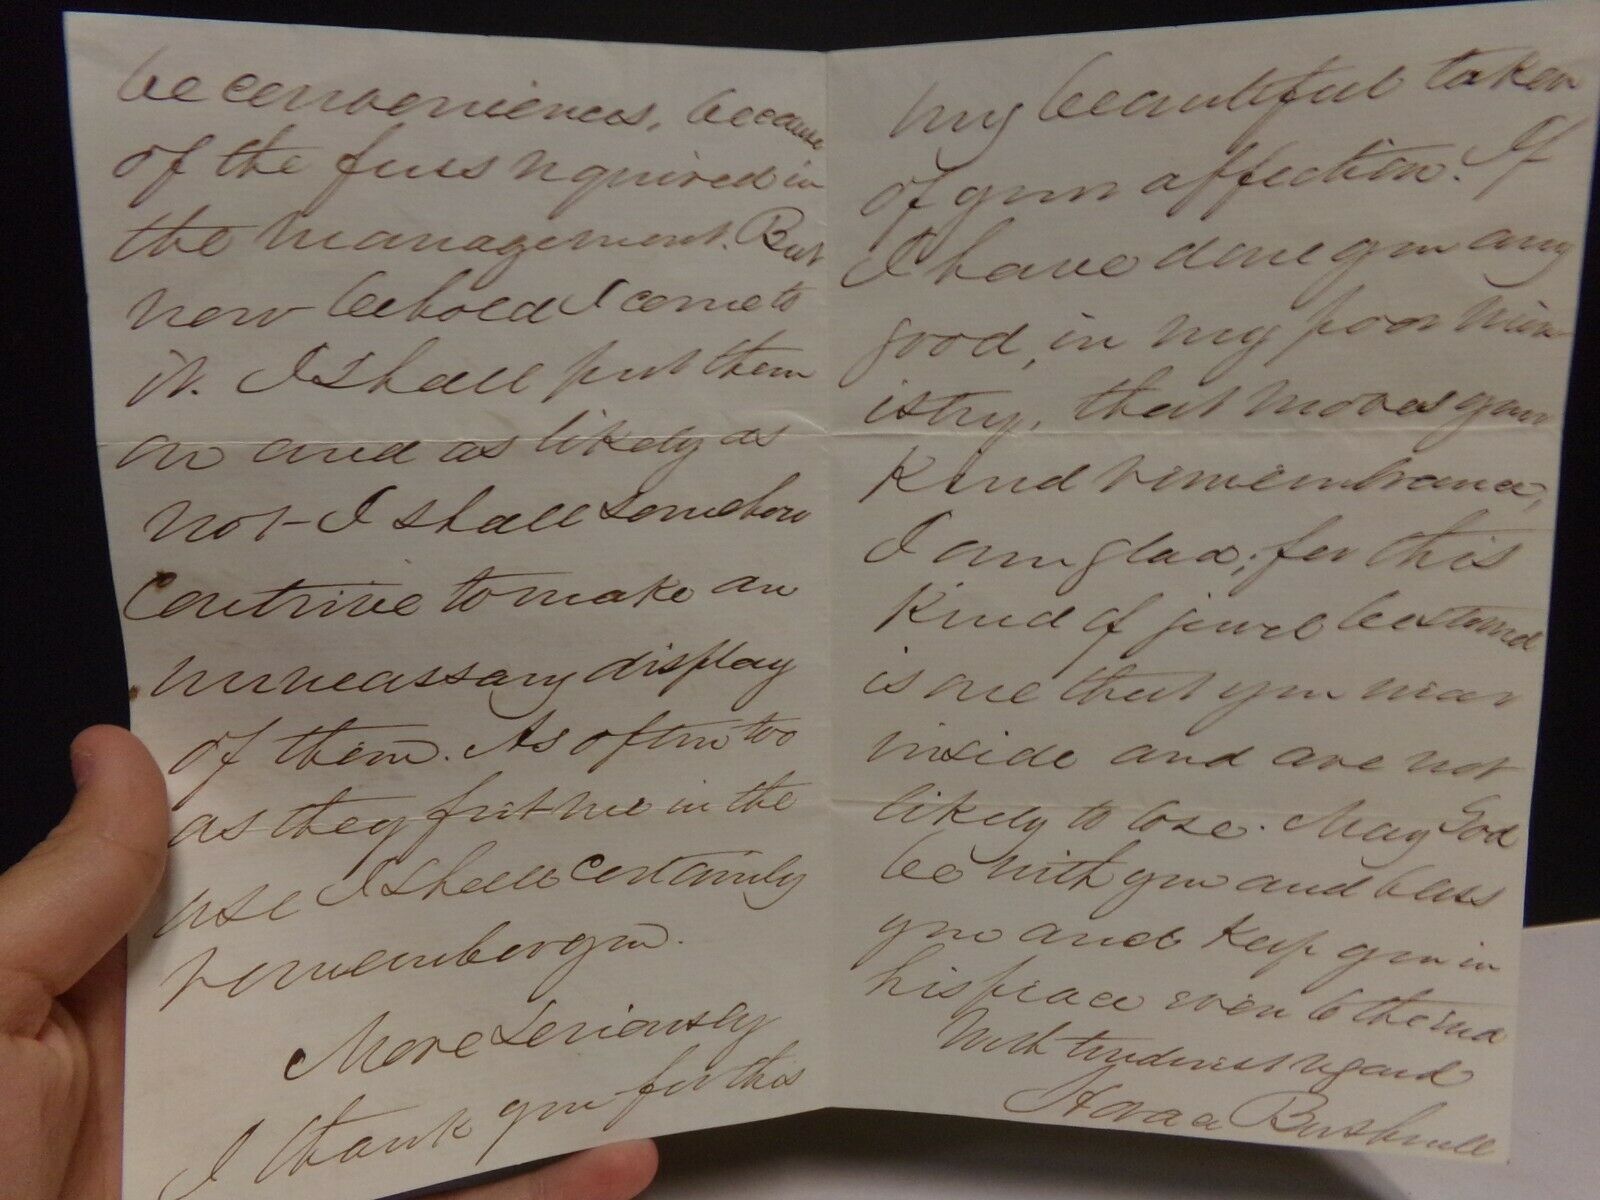 be conveniences, because
of the fuss required in
the management. But
now behold I come to
it. I shall put them
on and as likely as
not I shall somehow
contrive to make an
unnecessary display
of them. As often too
as they put me in the
use I shall certainly
remember you.
More seriously
I thank you for this
my beautiful token
of your affection. If
I have done you any
good, in my poor min-
istry, that moves your
kind remembrance,
I am glad; for this
kind of jewel bestowed
is one that you wear
inside and are not
likely to lose. May God
be with you and bless
you and keep you in
his peace even to the end
With tenderest regard
Horace Bushnell